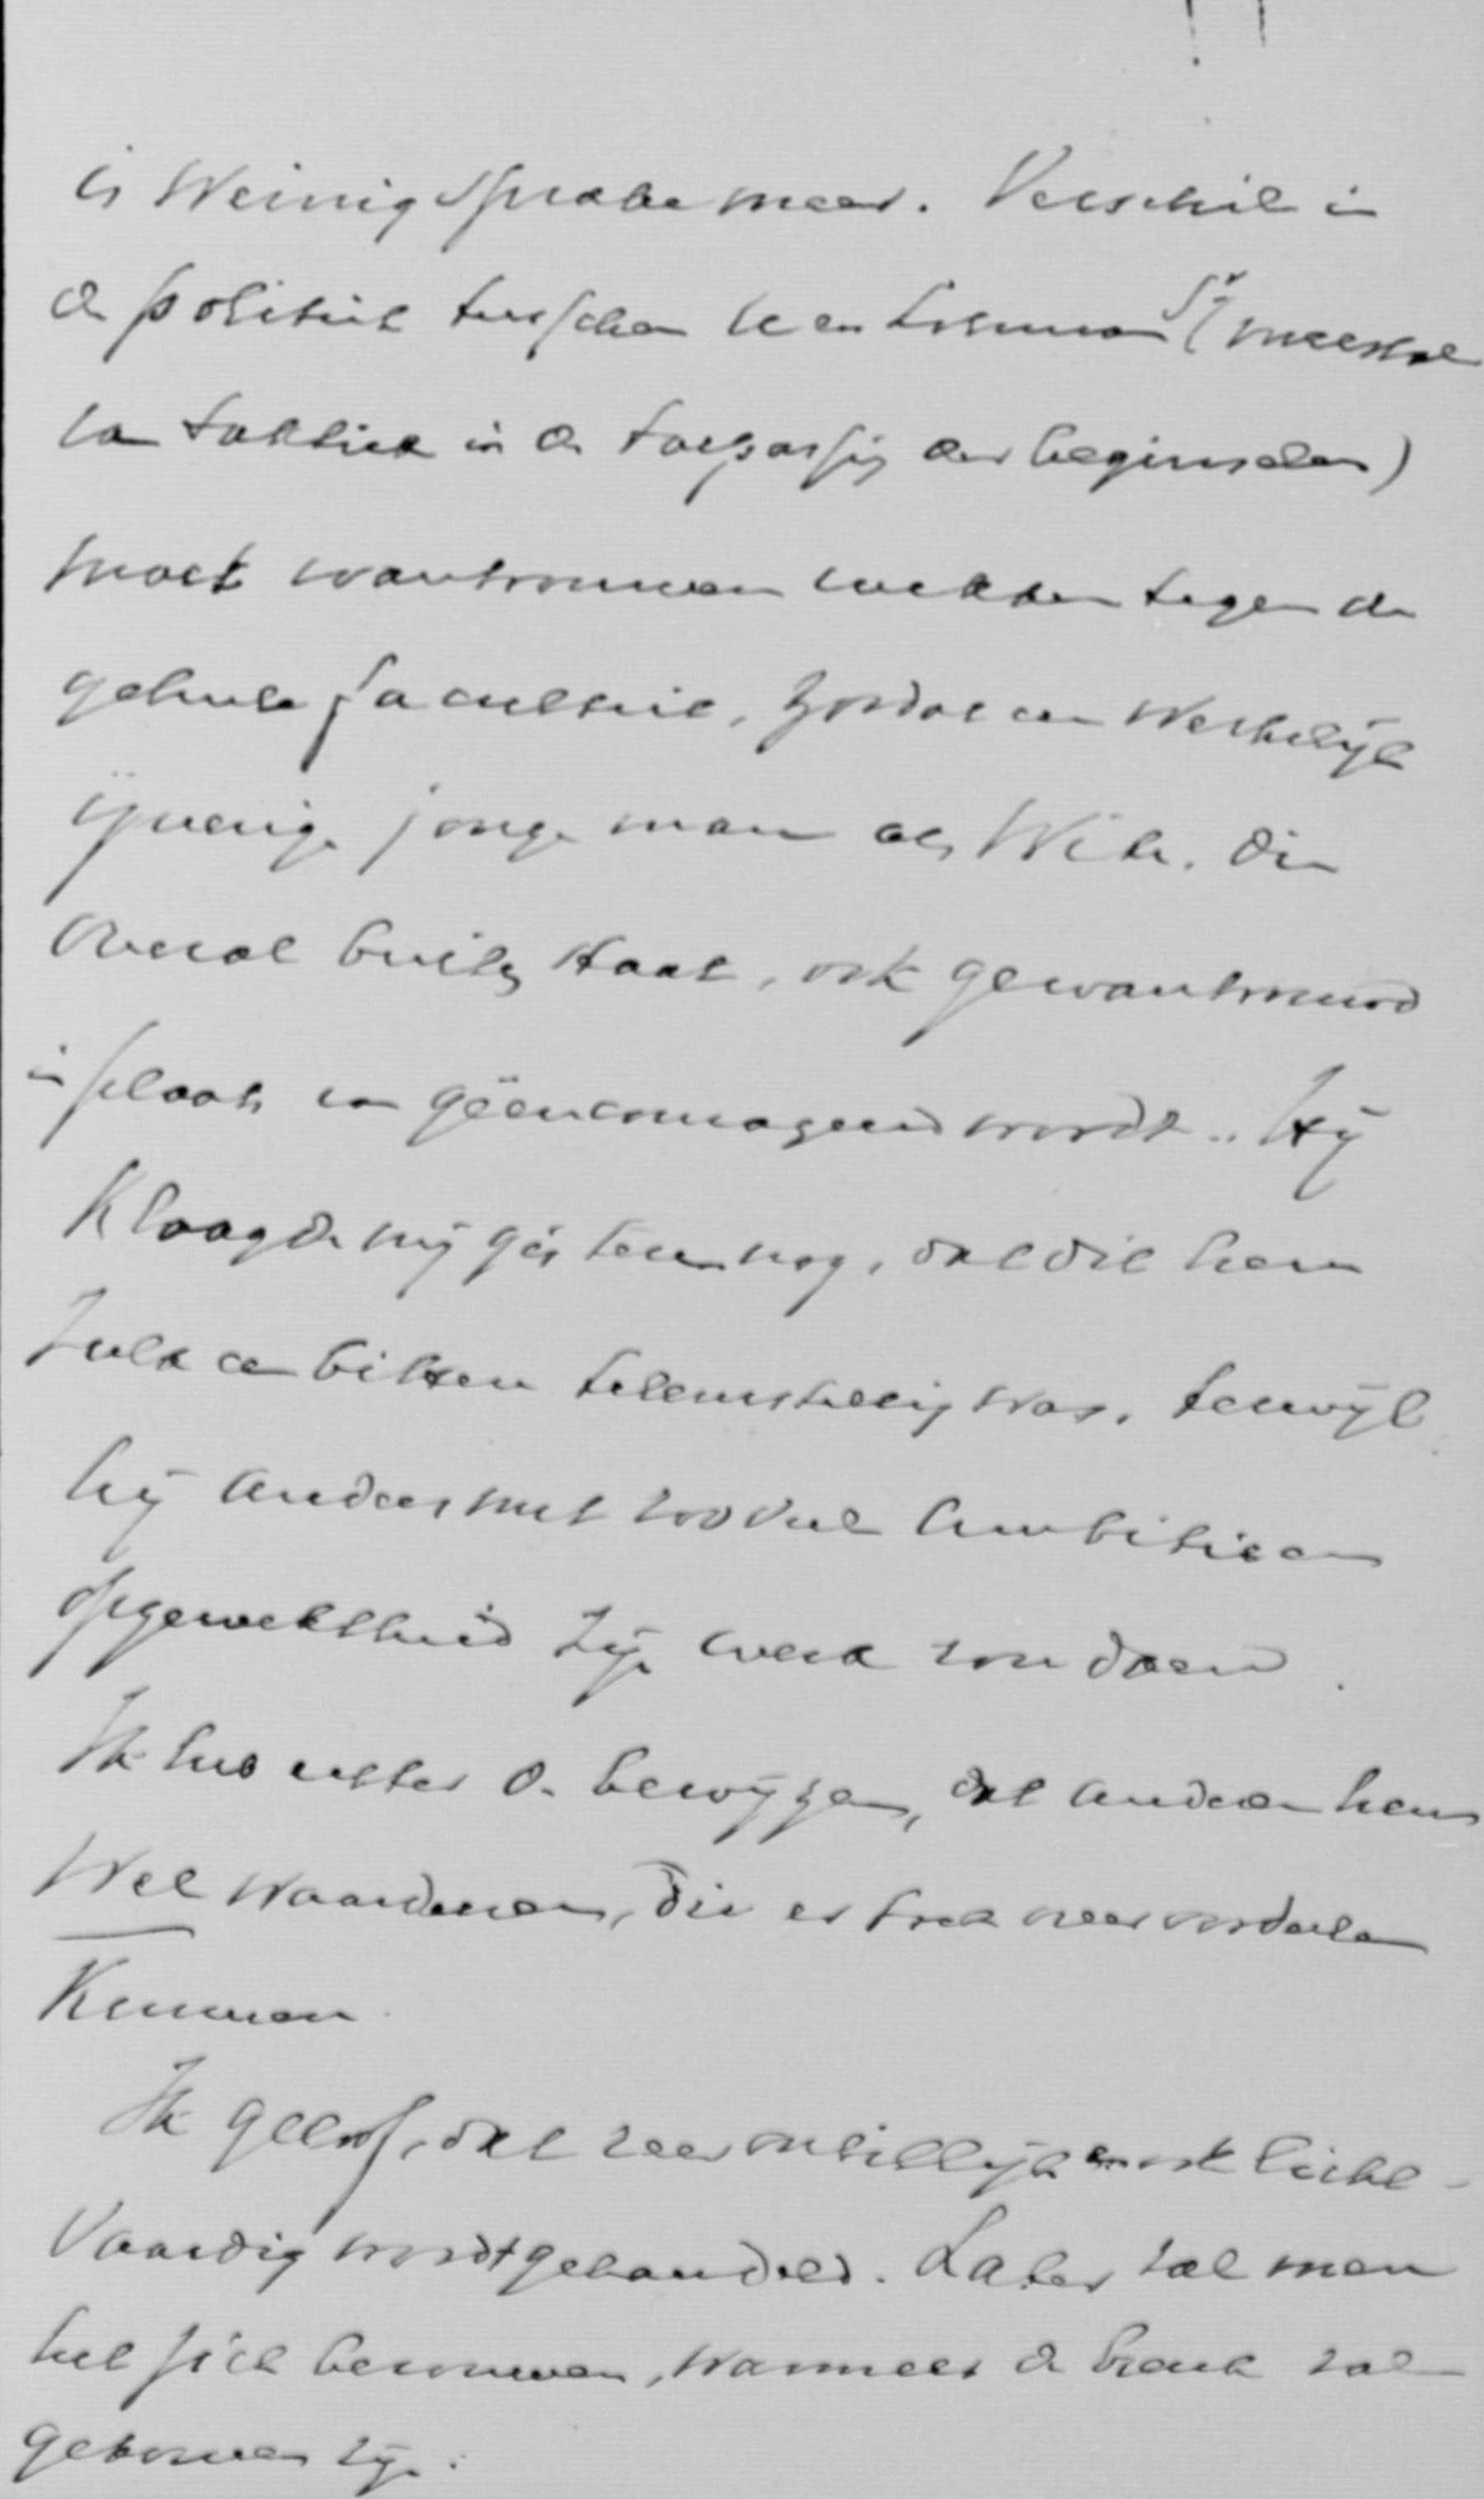 is Weinig sprake meer. Verschil in
de politiek tusschen U en Lohman (meestal
van taktiek in de toepassing der beginselen)
moet wantrouwen wekken tegen de
geheele faculteit, zoodat een werkelijk
ijverige jonge man als Wils. die
overal buiten staat, ook gewantrouwd
in plaats van geëncourageerd wordt.. Hij
Klaagde mij gisteren nog, dat dit hem
zulk een bittere teleurstelling was, terwijl
hij anders met zooveel ambitie en
opgewektheid zijn werk zou doen.
Ik heb echter de bewijzen, dat anderen hem
Wel waardeeren, die er trek over oordeelen
Kunnen.
Ik geloof, dat zeer onbillijk en ook licht-
vaardig wordt gehandeld. Later zal men
het zich berouwen, wanneer de breuk zal
gekomen zijn.